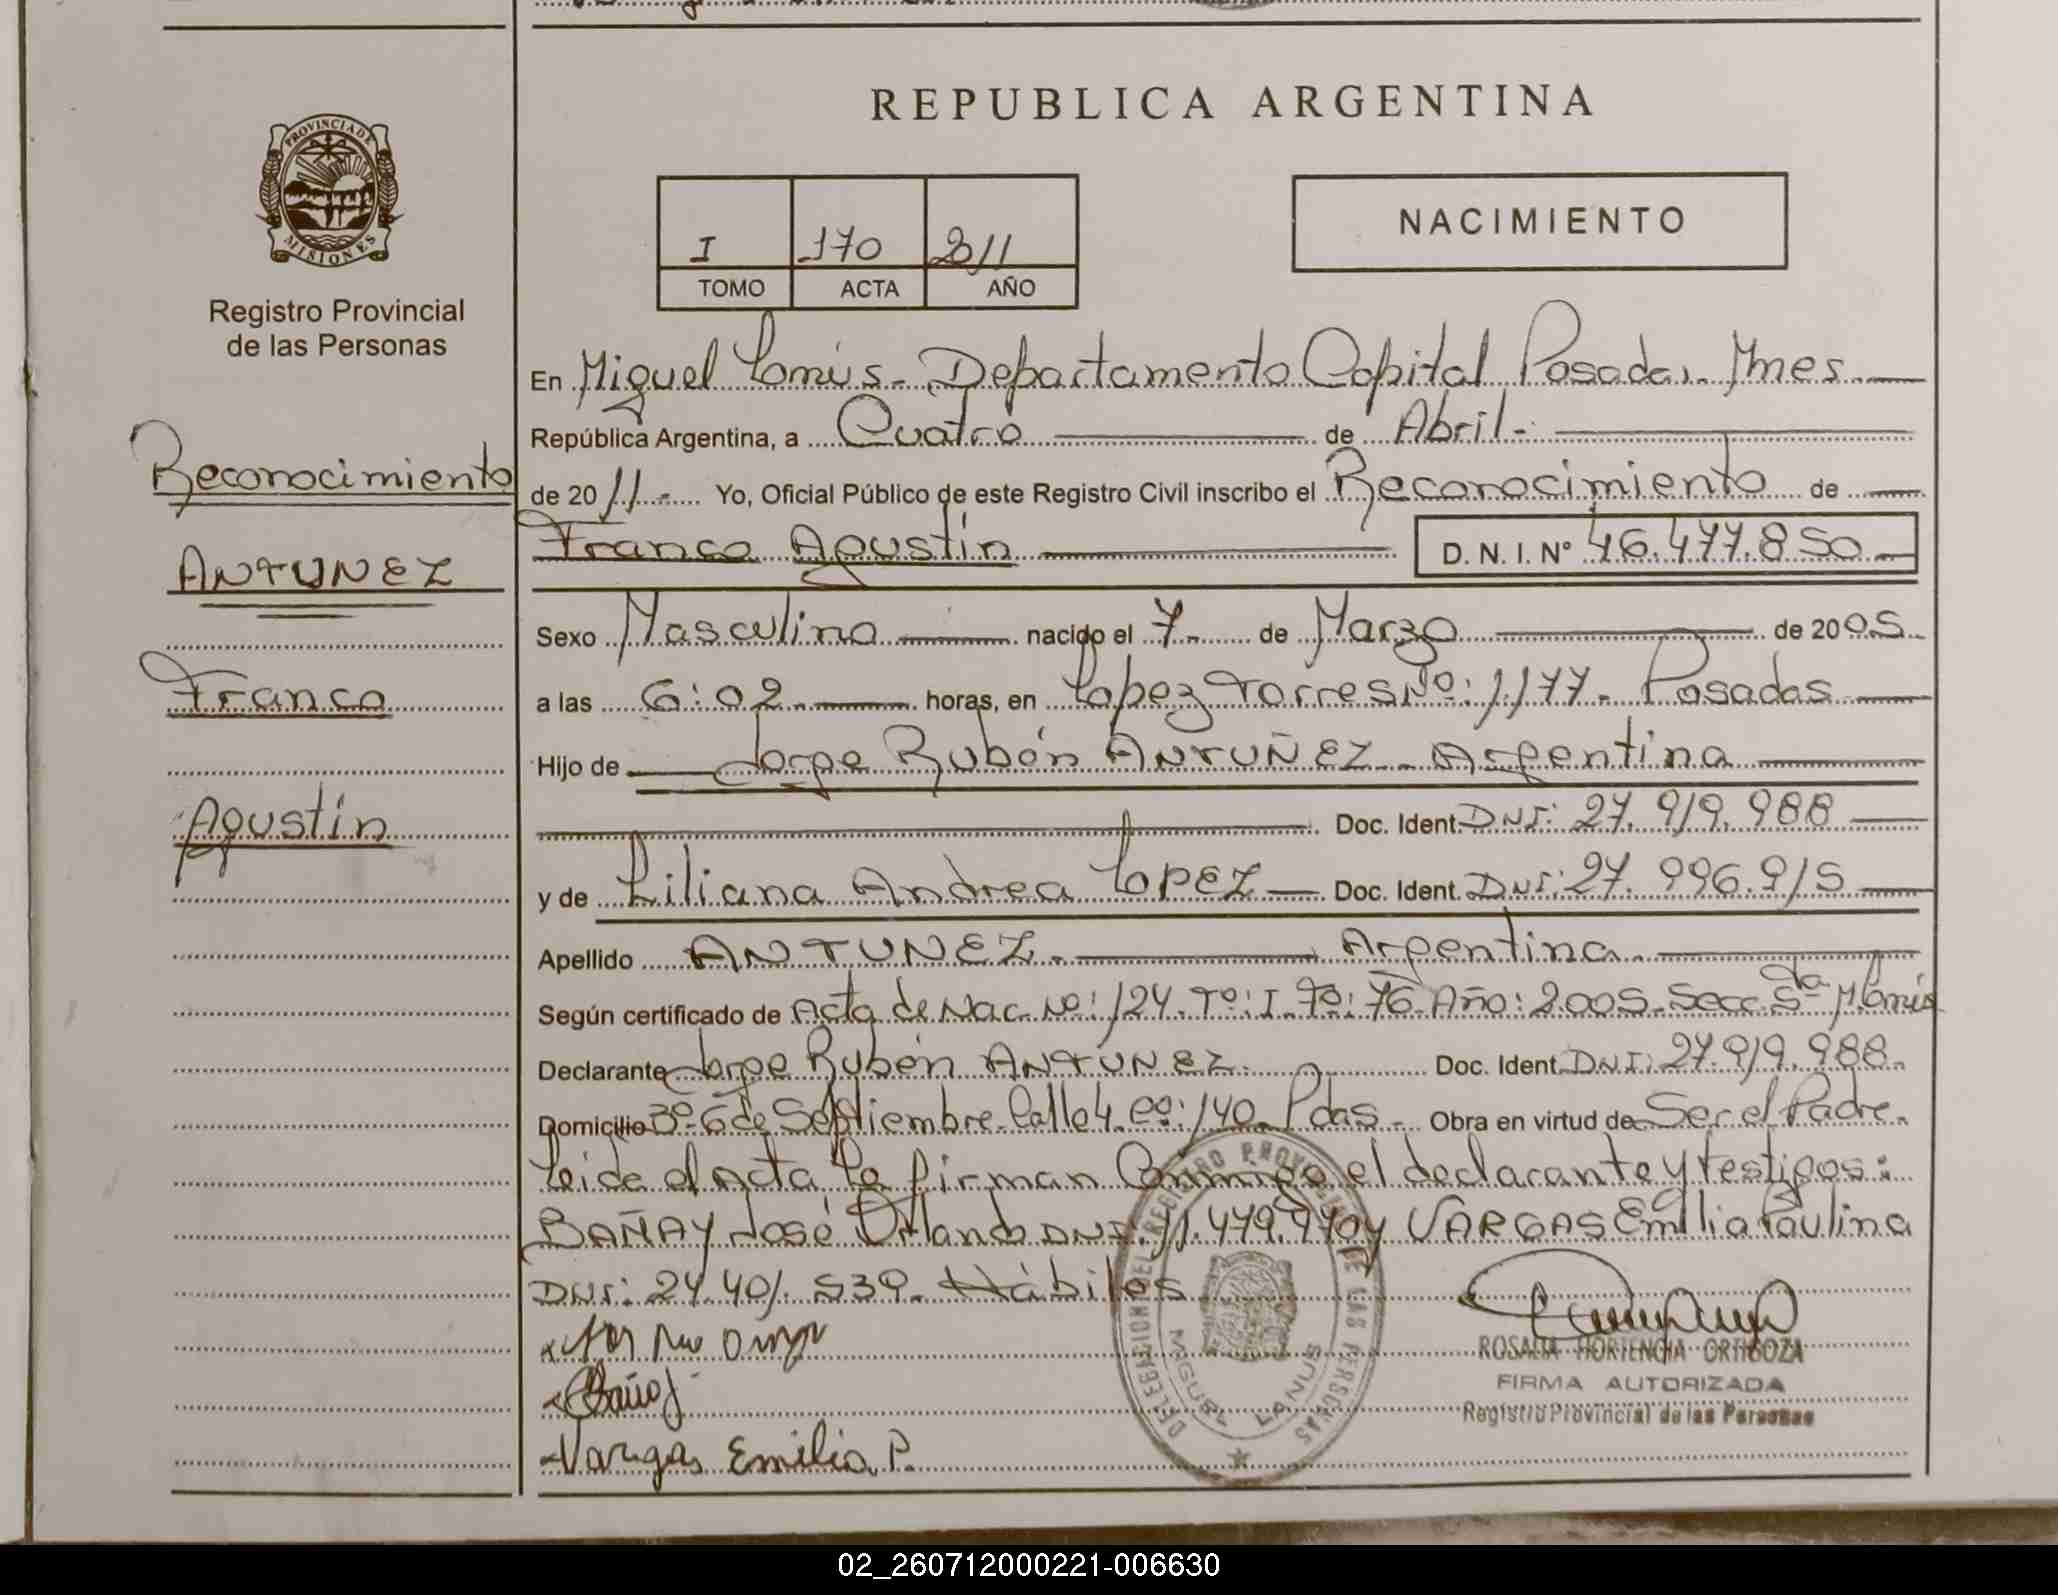 REPUBLICA ARGENTINA
PROVINCIA DE MISIONES
Registro Provincial
de las Personas
I 170 2011
TOMO ACTA AÑO
NACIMIENTO
Reconocimiento
ANTUNEZ
Franco
Agustín
En Miguel Lanús - Departamento Capital Posadas. Mnes
República Argentina, a Cuatro de Abril.-
de 2011.- Yo, Oficial Público de este Registro Civil inscribo el Reconocimiento de
Franco Agustín D. N. I. Nº 46.477.850
Sexo Masculino nacido el 7 de Marzo de 2005
a las 6:02 horas, en Lopez Torres Nº: 1177- Posadas
Hijo de Jorge Rubén ANTUÑEZ - Argentina
Doc. Ident. DNI: 27.919.988
y de Liliana Andrea LOPEZ Doc. Ident. DNI: 27.996.915
Apellido ANTUNEZ. Argentina.
Según certificado de Acta de Nac. Nº: 124. Tº: I. Fº: 76. Año: 2005. Secc. 5ta M. Lanús
Declarante Jorge Rubén ANTUNEZ. Doc. Ident. DNI: 27.919.988.
Domicilio Bº 6 de Septiembre Calle 4. Cº: 140. Pdas. Obra en virtud de Ser el Padre.
Leida el Acta la firman Conmigo el declarante y testigos:
BAÑAY José Orlando DNI: 11.479.970 y VARGAS Emilia Paulina
DNI: 24.401.539. Hábiles
Vargas Emilia P.
DELEGACION DEL REGISTRO PROVINCIAL DE LAS PERSONAS
MIGUEL LANUS
ROSALIA HORTENCIA ORTIGOZA
FIRMA AUTORIZADA
Registro Provincial de las Personas
02_260712000221-006630